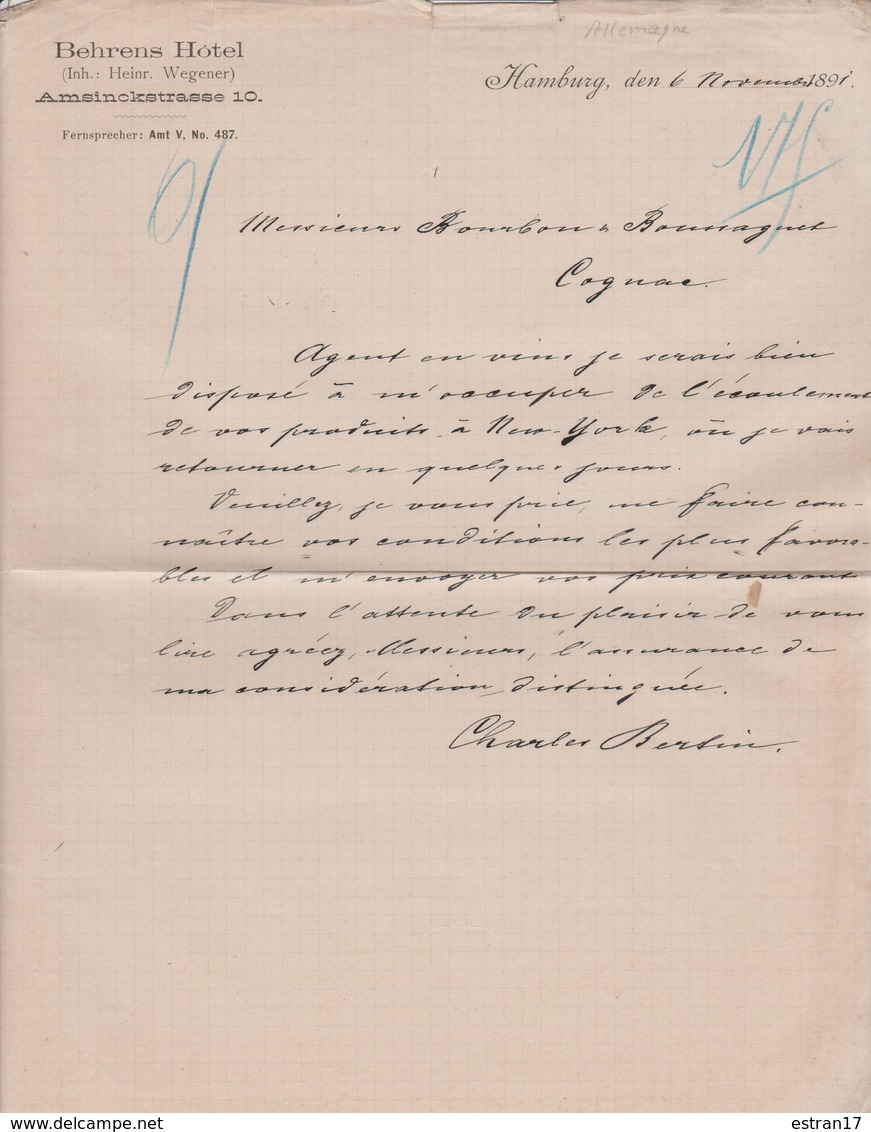 Allemagne
Behrens Hôtel
(Inh.: Heinr. Wegener)
Amsinckstrasse 10.
Fernsprecher: Amt V, No. 487.
Hamburg, den 6 Novembre 1891.
Messieurs Bourbon & Boussaquet
Cognac.
Agent en vins je serais bien
disposé à m'occuper de l'écoulement
de vos produits à New-York, où je vais
retourner en quelques jours.
Veuillez, je vous prie, me faire con-
naître vos conditions les plus favora-
bles et m'envoyer vos prix courants
Dans l'attente du plaisir de vous
lire agréez, Messieurs, l'assurance de
ma considération distinguée.
Charles Bertin.
estran17